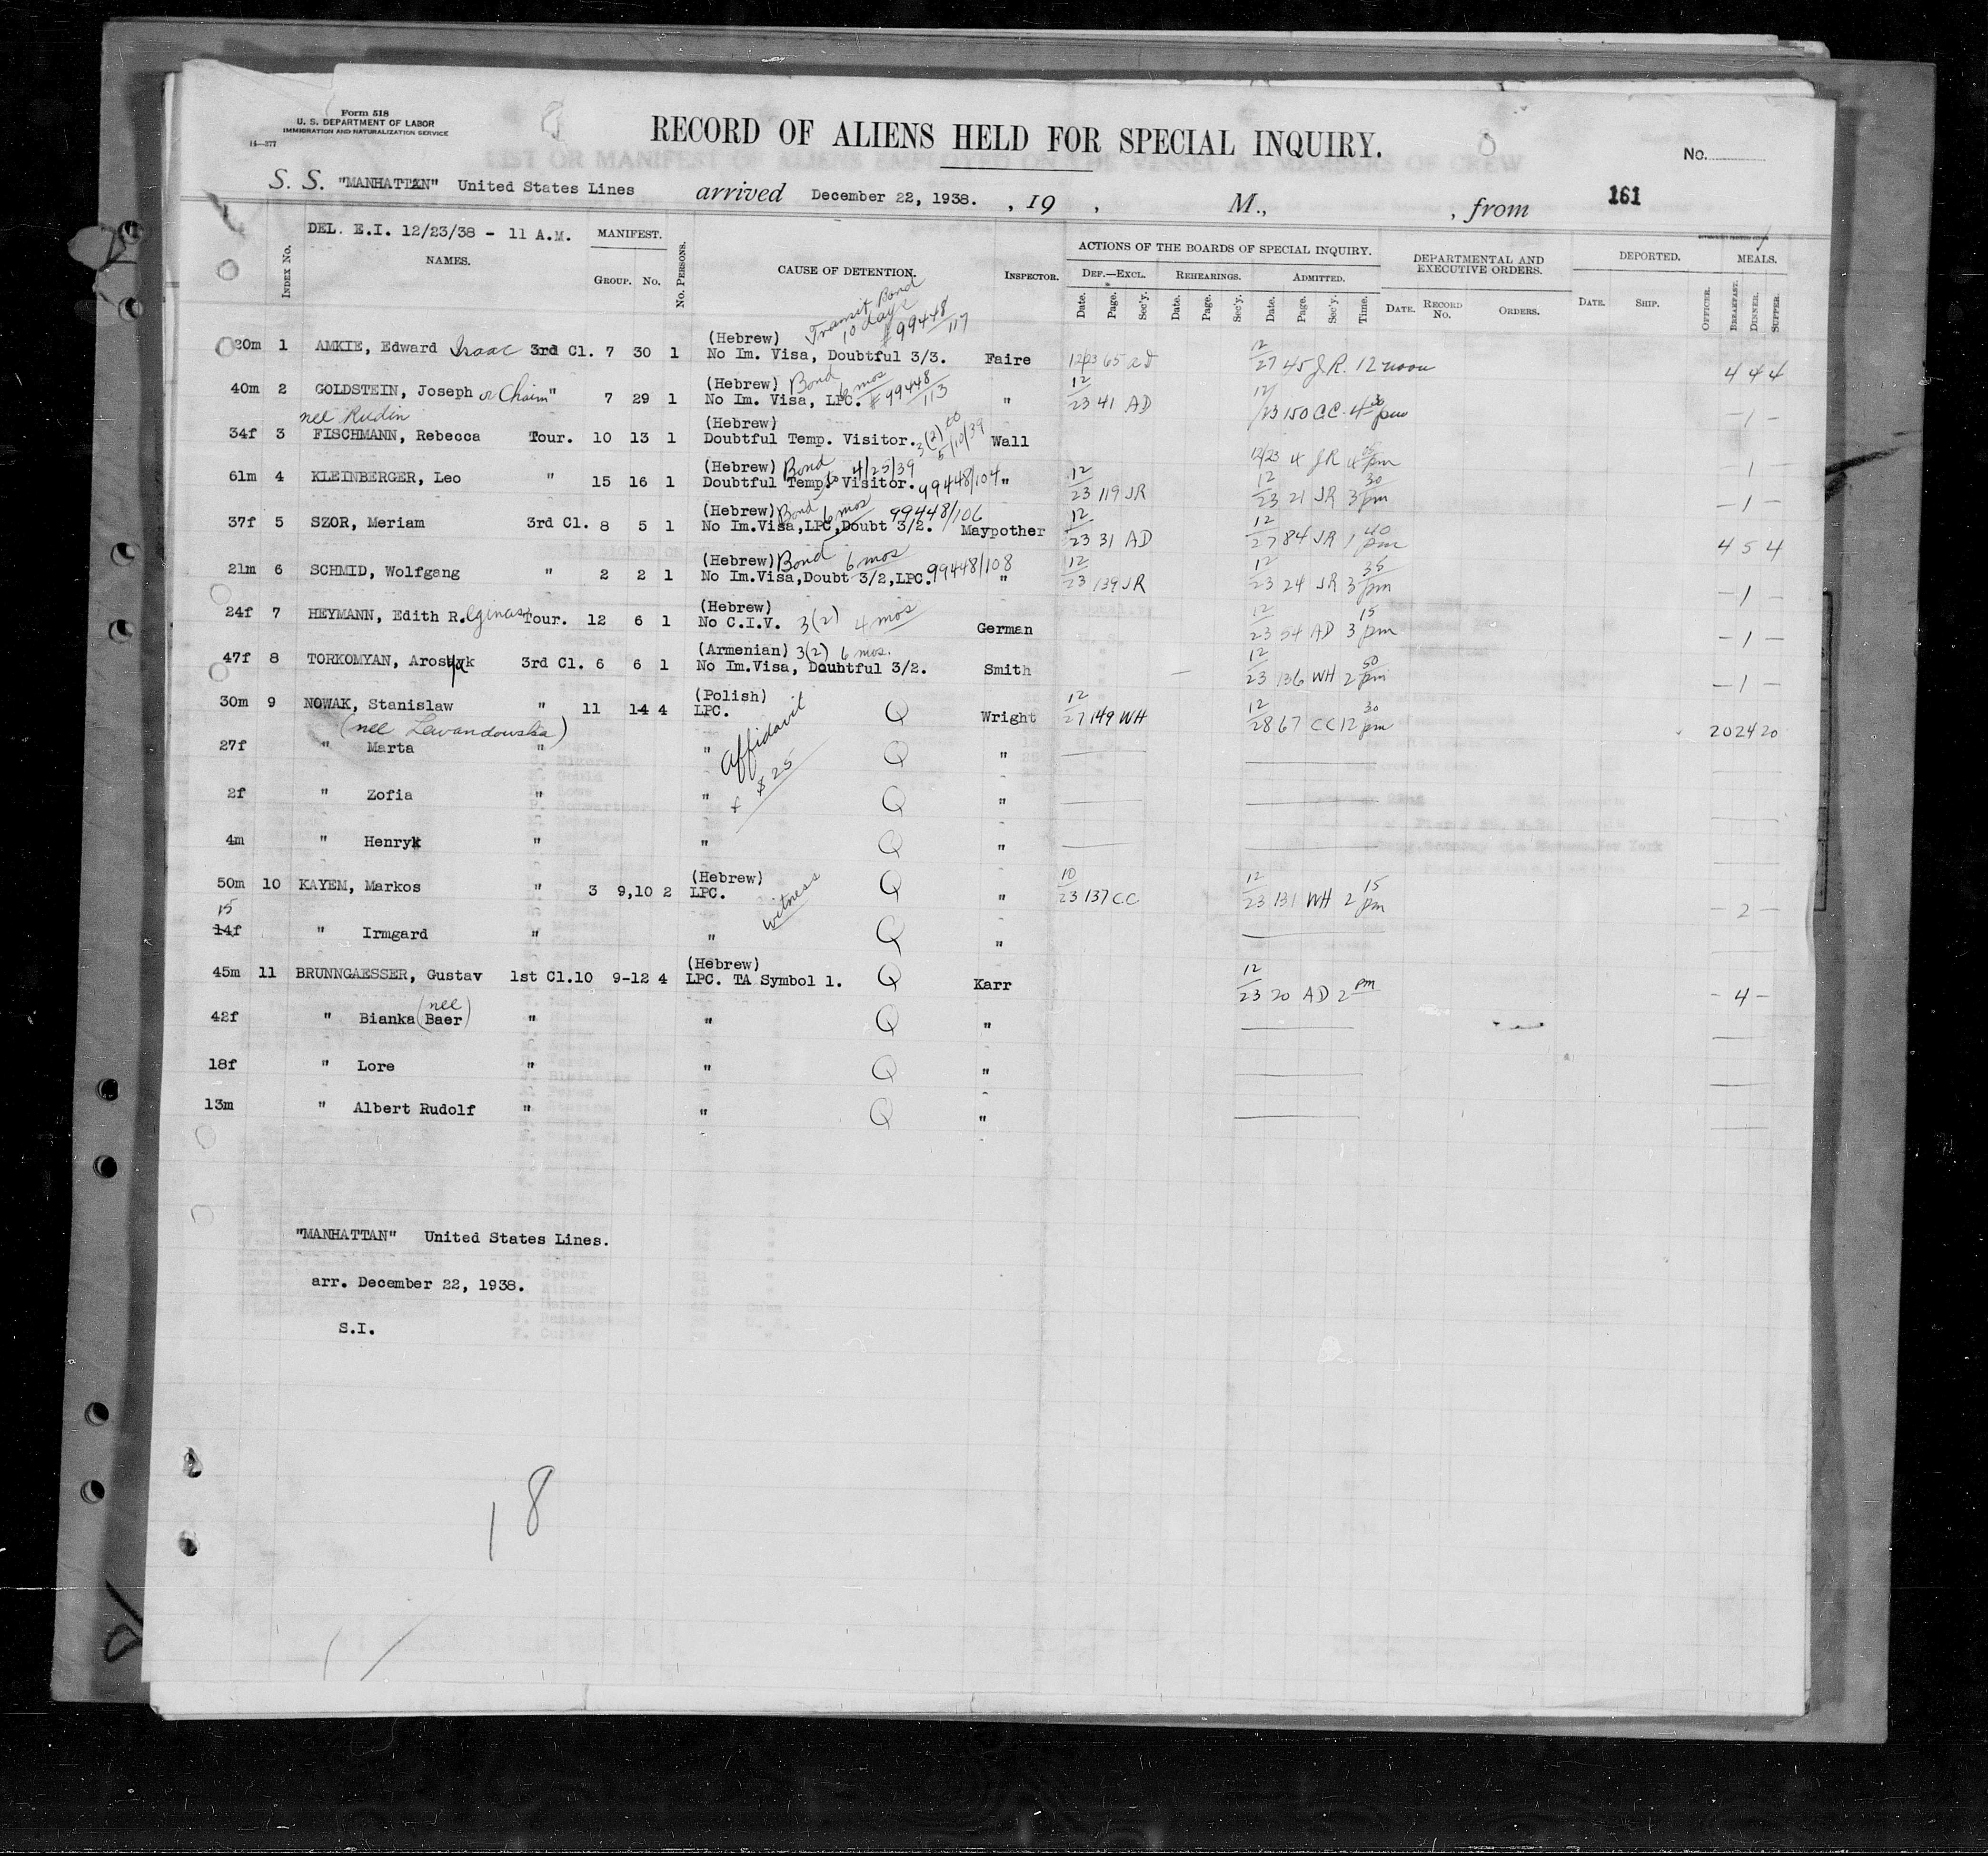 Form 518
U. S. DEPARTMENT OF LABOR
IMMIGRATION AND NATURALIZATION SERVICE
14—377
RECORD OF ALIENS HELD FOR SPECIAL INQUIRY.
No.
S. S. "MANHATTAN" United States Lines arrived December 22, 1938. , 19 , M., , from 161
DEL. E.I. 12/23/38 - 11 A.M.
INDEX No. NAMES. MANIFEST. GROUP. No. No. PERSONS. CAUSE OF DETENTION. INSPECTOR. ACTIONS OF THE BOARDS OF SPECIAL INQUIRY. DEPARTMENTAL AND EXECUTIVE ORDERS. DEPORTED. MEALS.
DEF.—EXCL. REHEARINGS. ADMITTED.
Date. Page. Sec'y. Date. Page. Sec'y. Date. Page. Sec'y. Time. DATE. RECORD No. ORDERS. DATE. SHIP. OFFICER. BREAKFAST. DINNER. SUPPER.
Transit Bond
10 days
(Hebrew) # 99448/117
20m 1 AMKIE, Edward Isaac 3rd Cl. 7 30 1 No Im. Visa, Doubtful 3/3. Faire 12/23 65 AD 12/27 45 JR. 12 noon 4 4 4
(Hebrew) Bond 6 mos
40m 2 GOLDSTEIN, Joseph or Chaim " 7 29 1 No Im. Visa, LPC. # 99448/113 " 12/23 41 AD 12/23 150 CC 4 30 pm — 1 —
nee Rudin (Hebrew)
34f 3 FISCHMANN, Rebecca Tour. 10 13 1 Doubtful Temp. Visitor. 3(2) to 5/10/39 Wall 12/23 4 JR 4 pm — 1 —
(Hebrew) Bond to 4/25/39
61m 4 KLEINBERGER, Leo " 15 16 1 Doubtful Temp. Visitor. 99448/104 " 12/23 119 JR 12/23 21 JR 3 30 pm — 1 —
(Hebrew) Bond 6 mos 99448/106
37f 5 SZOR, Meriam 3rd Cl. 8 5 1 No Im.Visa,LPC,Doubt 3/2. Maypother 12/23 31 AD 12/27 84 JR 1 40 pm 4 5 4
(Hebrew) Bond 6 mos
21m 6 SCHMID, Wolfgang " 2 2 1 No Im.Visa,Doubt 3/2,LPC. 99448/108 " 12/23 139 JR 12/23 24 JR 3 35 pm — 1 —
(Hebrew)
24f 7 HEYMANN, Edith R. Tour. 12 6 1 No C.I.V. 3(2) 4 mos German 12/23 54 AD 3 15 pm — 1 —
(Armenian) 3(2) 6 mos.
47f 8 TORKOMYAN, 3rd Cl. 6 6 1 No Im.Visa, Doubtful 3/2. Smith — 12/23 136 WH 2 50 pm — 1 —
(Polish)
30m 9 NOWAK, Stanislaw " 11 14 4 LPC. Q Wright 12/27 149 WH 12/28 67 CC 12 30 pm 20 24 20
(nee Lewandowska)
27f " Marta " " Affidavit Q "
2f " Zofia " " + $25 Q "
4m " Henryk " " Q "
(Hebrew)
50m 10 KAYEM, Markos " 3 9,10 2 LPC. witness Q " 10/23 137 CC 12/23 131 WH 2 15 pm — 2 —
15
14f " Irmgard " " Q "
(Hebrew)
45m 11 BRUNNGAESSER, Gustav 1st Cl. 10 9-12 4 LPC. TA Symbol 1. Q Karr 12/23 20 AD 2 pm — 4 —
42f " Bianka (nee Baer) " " Q "
18f " Lore " " Q "
13m " Albert Rudolf " " Q "
"MANHATTAN" United States Lines.
arr. December 22, 1938.
S.I.
18